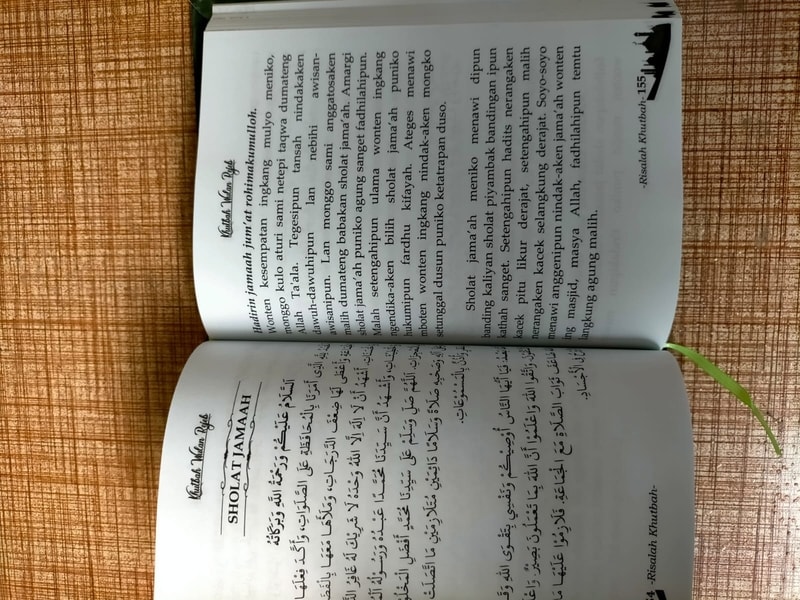 Khutbah Wulan Rajab
SHOLAT JAMAAH
اَلسَّلَامُ عَلَيْكُمْ وَرَحْمَةُ اللهِ وَبَرَكَاتُهُ
الَّذِي أَمَرَنَا بِالْمُحَافَظَةِ عَلَى الصَّلَوَاتِ، وَأَكَّدَ فِعْلَهَا
وَأَعْطَى لَهَا ضِعْفَ الدَّرَجَاتِ، وَمَلَأَهَا مَعَهَا
أَشْهَدُ أَنْ لَا إِلٰهَ إِلَّا اللهُ وَحْدَهُ لَا شَرِيْكَ لَهُ غَافِرُ
وَأَشْهَدُ أَنَّ سَيِّدَنَا مُحَمَّدًا عَبْدُهُ وَرَسُوْلُهُ
اَللّٰهُمَّ صَلِّ وَسَلِّمْ عَلَى سَيِّدِنَا مُحَمَّدٍ أَفْضَلِ
وَصَحْبِهِ صَلَاةً وَسَلَامًا دَائِمَيْنِ مُتَلَازِمَيْنِ مَا اتَّصَلَتْ
بِالْمَسْمُوْعَاتِ.
فَيَا أَيُّهَا النَّاسُ أُوْصِيْكُمْ وَنَفْسِيْ بِتَقْوَى اللهِ
وَاتَّقُوا اللهَ وَاعْلَمُوْا أَنَّ اللهَ بِمَا تَعْمَلُوْنَ بَصِيْرٌ
ثَوَابَ الصَّلَاةِ مَعَ الْجَمَاعَةِ، فَلَازِمُوْا عَلَيْهَا
الْأَجْسَادِ.
-Risalah Khutbah-
Khutbah Wulan Rajab
Hadirin jamaah jum'at rohimakumulloh.
Wonten kesempatan ingkang mulyo meniko,
monggo kulo aturi sami netepi taqwa dumateng
Allah Ta'ala. Tegesipun tansah nindakaken
dawuh-dawuhipun lan nebihi awisan-
awisanipun. Lan monggo sami anggatosaken
malih dumateng babakan sholat jama'ah. Amargi
sholat jama'ah puniko agung sanget fadhilahipun.
Malah setengahipun ulama wonten ingkang
ngendika-aken bilih sholat jama'ah puniko
hukumipun fardhu kifayah. Ateges menawi
mboten wonten ingkang nindak-aken mongko
setunggal dusun puniko ketatrapan duso.
Sholat jama'ah meniko menawi dipun
banding kaliyan sholat piyambak bandingan ipun
kathah sanget. Setengahipun hadits nerangaken
kacek pitu likur derajat, setengahipun malih
nerangaken kacek selangkung derajat. Soyo-soyo
menawi anggenipun nindak-aken jama'ah wonten
ing masjid, masya Allah, fadhilahipun temtu
langkung agung malih.
-Risalah Khutbah- 155